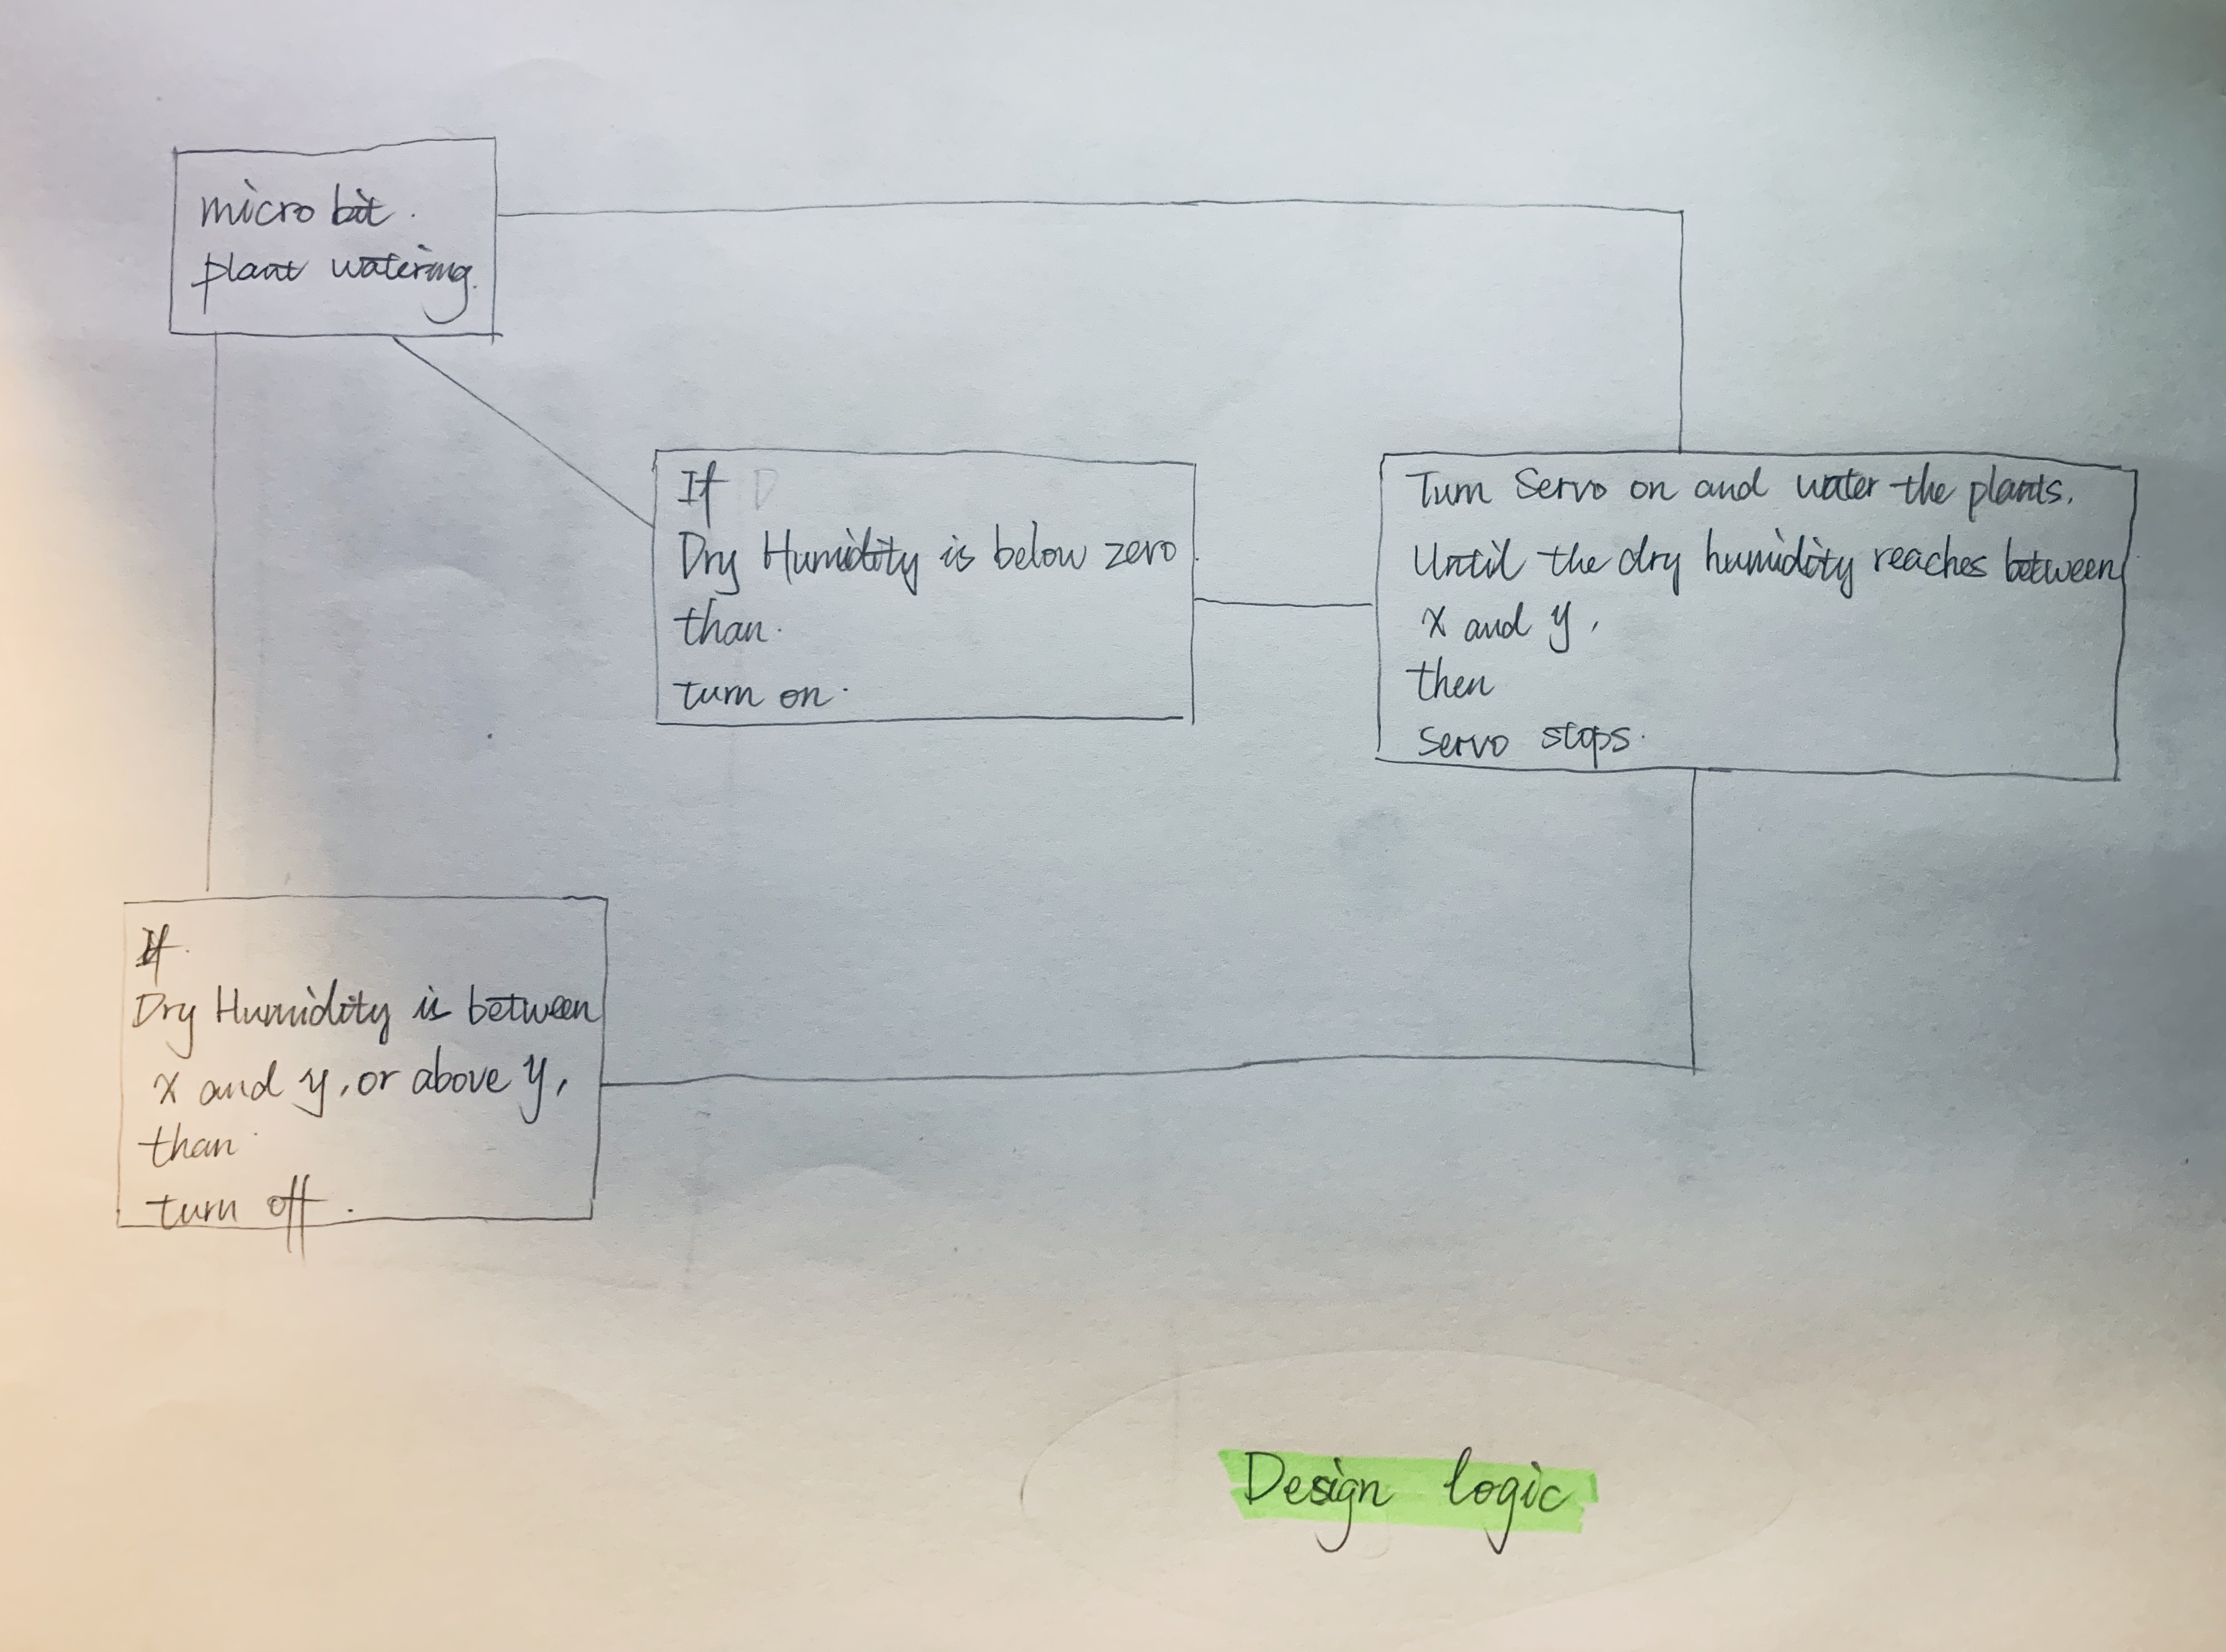 micro bit.
plant watering.
If D
Dry Humidity is below zero
than.
turn on.
Turn Servo on and water the plants.
Until the dry humidity reaches between
x and y,
then
servo stops.
If.
Dry Humidity is between
x and y, or above y,
than
turn off.
Design logic